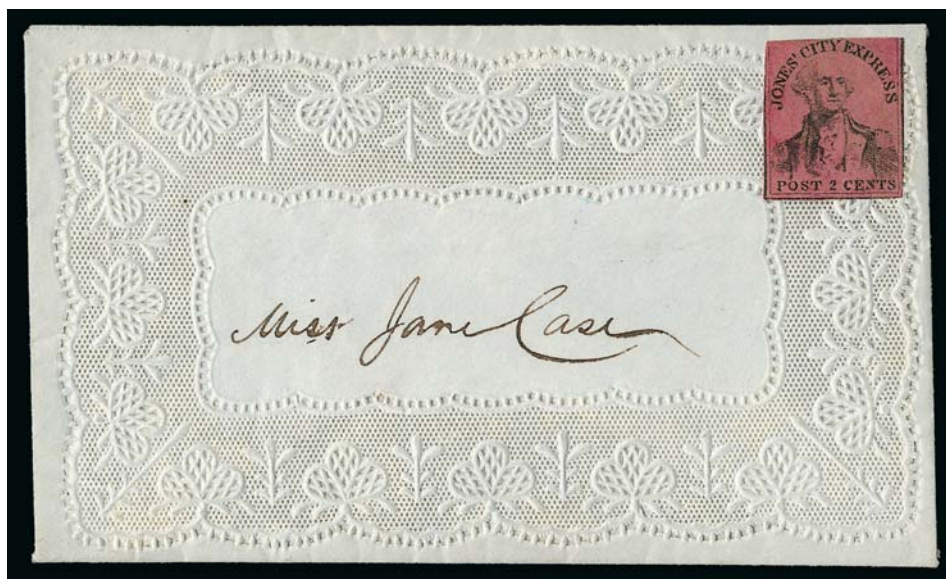 JONES' CITY EXPRESS
POST 2 CENTS
Miss Jane Case